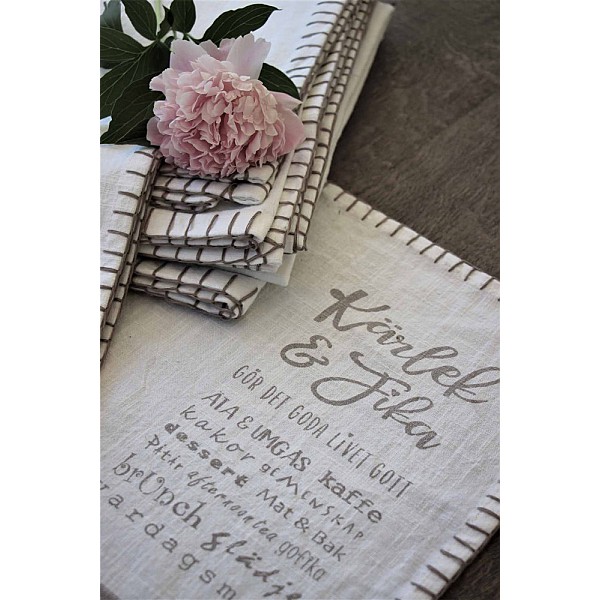 Kärlek
& Fika
GÖR DET GODA LIVET GOTT
ÄTA & UMGÅS kaffe
kakor GEMENSKAP
dessert Mat & Bak
Petit afternoontea gofika
brunch glädje
vardagsm